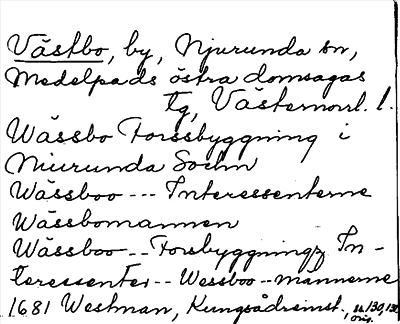 Västbo, by, Njurunda sn,
Medelpads östra domsagas
tg, Västernorrl. l.
Wässbo Forssbyggning i
Niurunda Sochn
Wässboo --- Interessenterne
Wässbomannen
Wässboo -- Forsbyggningz In-
teressenter -- Wessboo -- mannerne
1681 Westman, Kungsådreinst.,
orig.